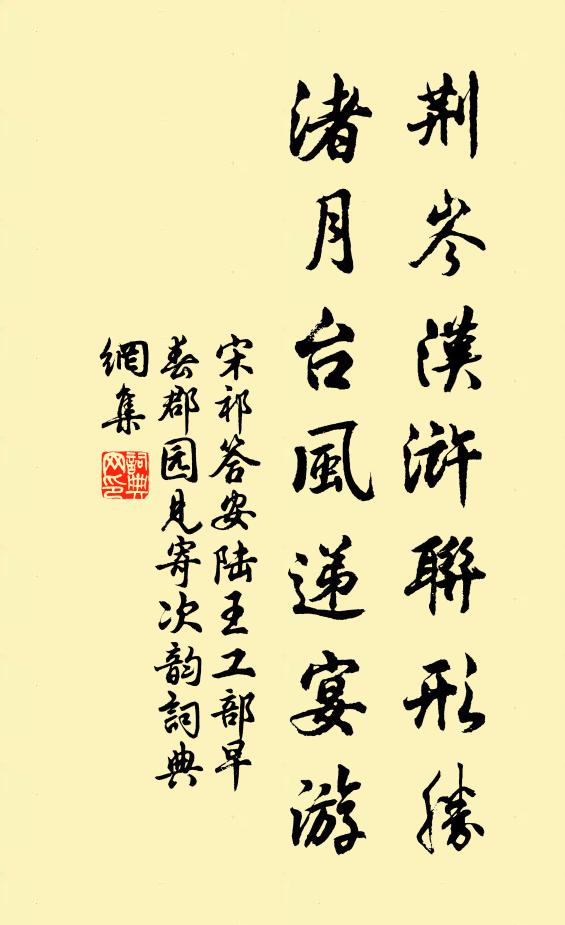 荆岑漢滸聯形勝
渚月台風递宴游
宋祁答安陆王工部早
春郡园見寄次韵詞典
網集
詞典
网印